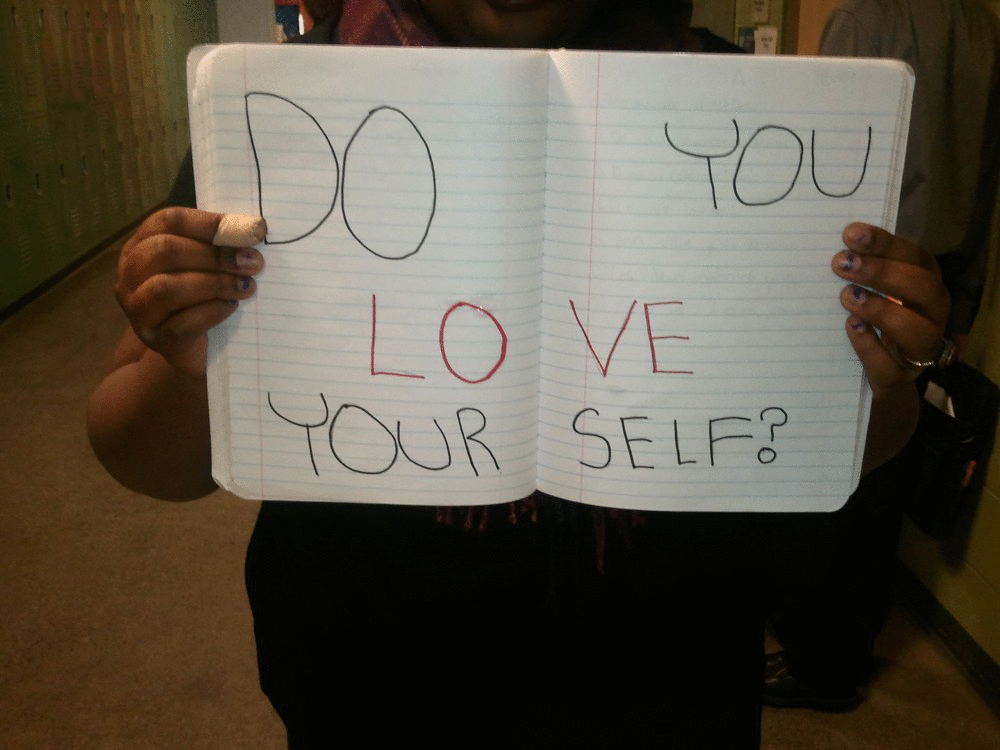 DO YOU
LOVE
YOUR SELF?